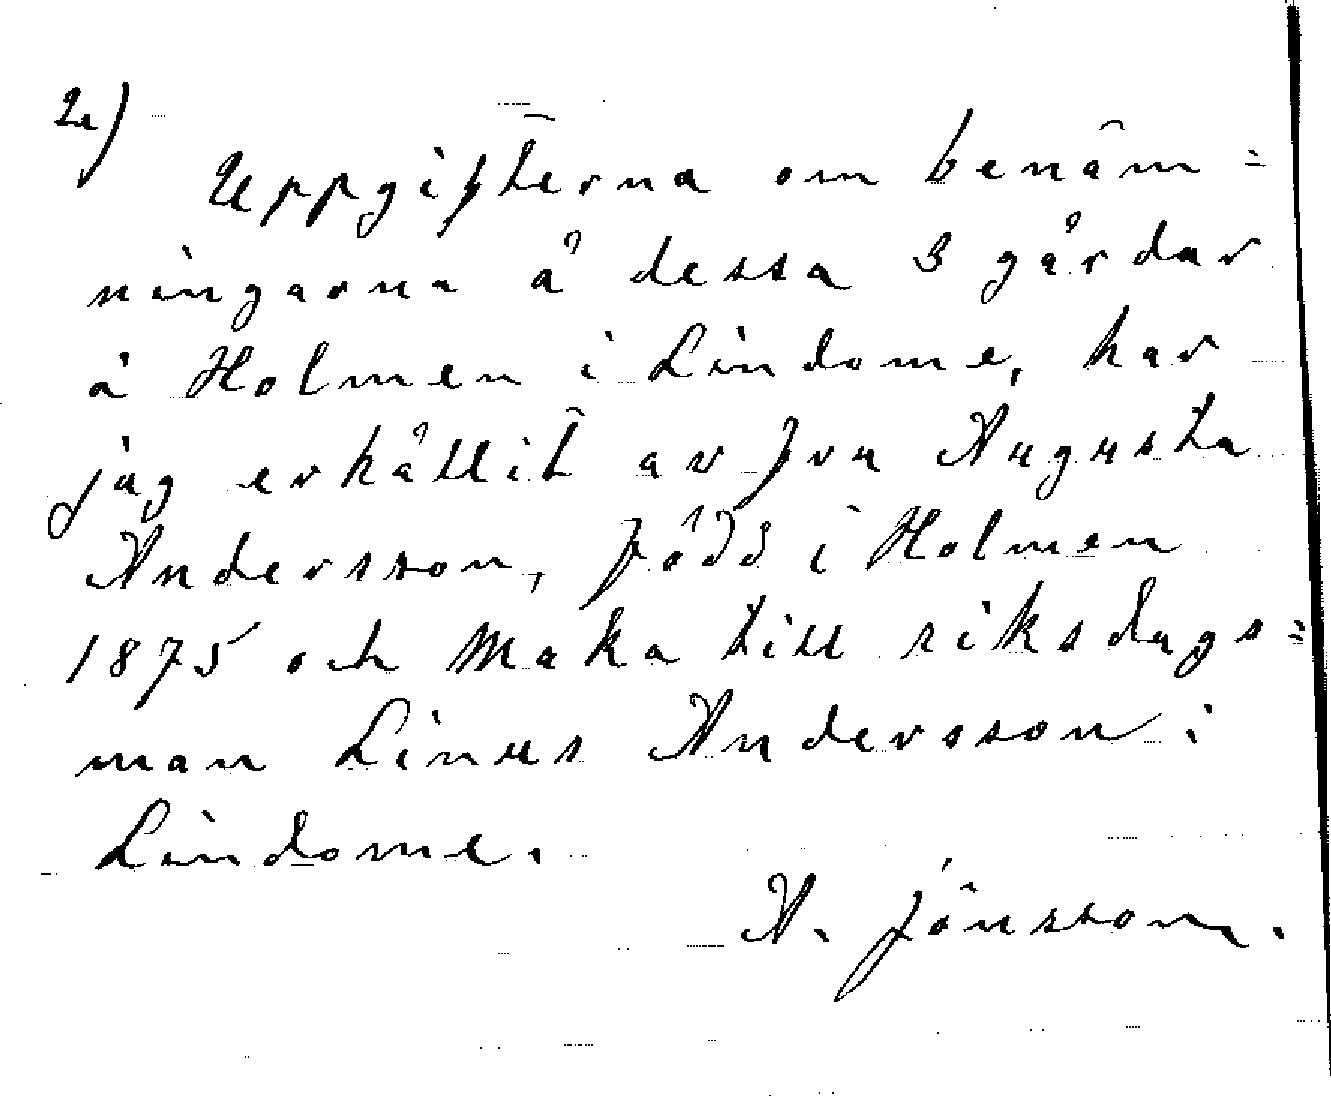 2)
Uppgifterna om benäm=
ningarna å dessa 3 gårdar
å Holmen i Lindome, har
jag erhållit av fru Augusta
Andersson, född i Holmen
1875 och Maka till riksdags=
man Linus Andersson i
Lindome.
A. Jönsson.